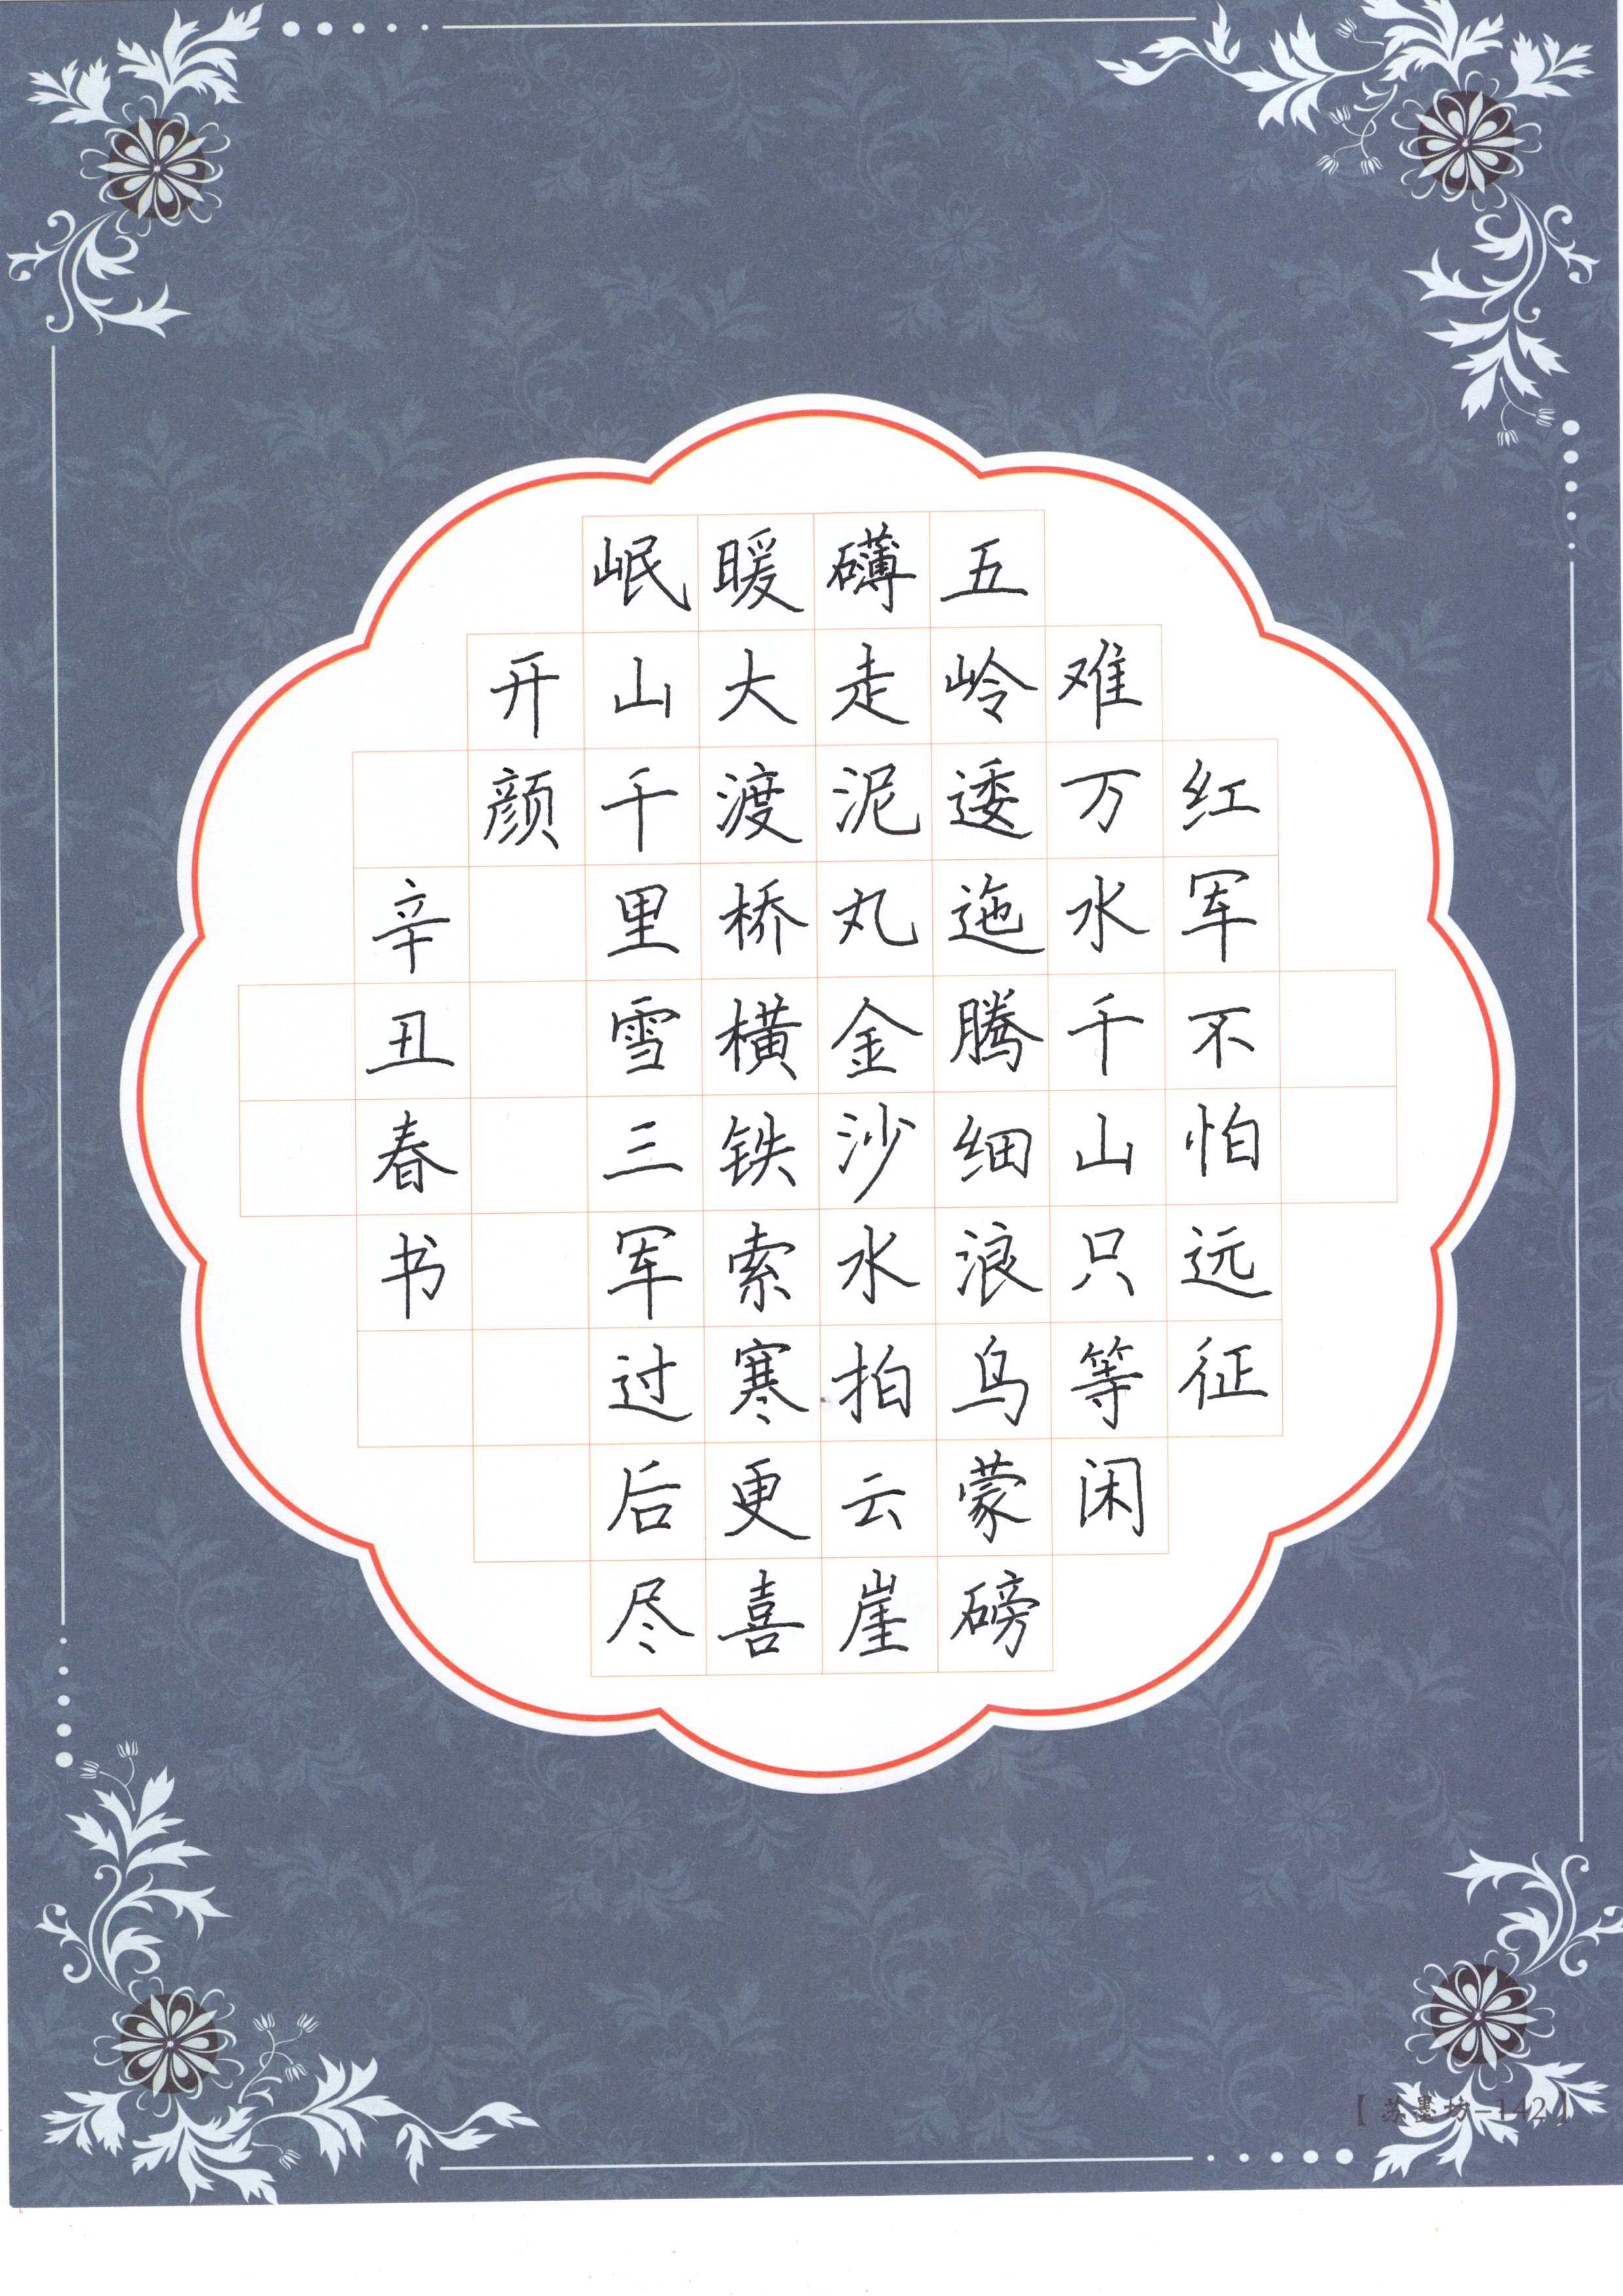 红军不怕远征
难万水千山只等闲
五岭逶迤腾细浪乌蒙磅
礴走泥丸金沙水拍云崖
暖大渡桥横铁索寒更喜
岷山千里雪三军过后尽
开颜
辛丑春书
【苏墨坊-142】